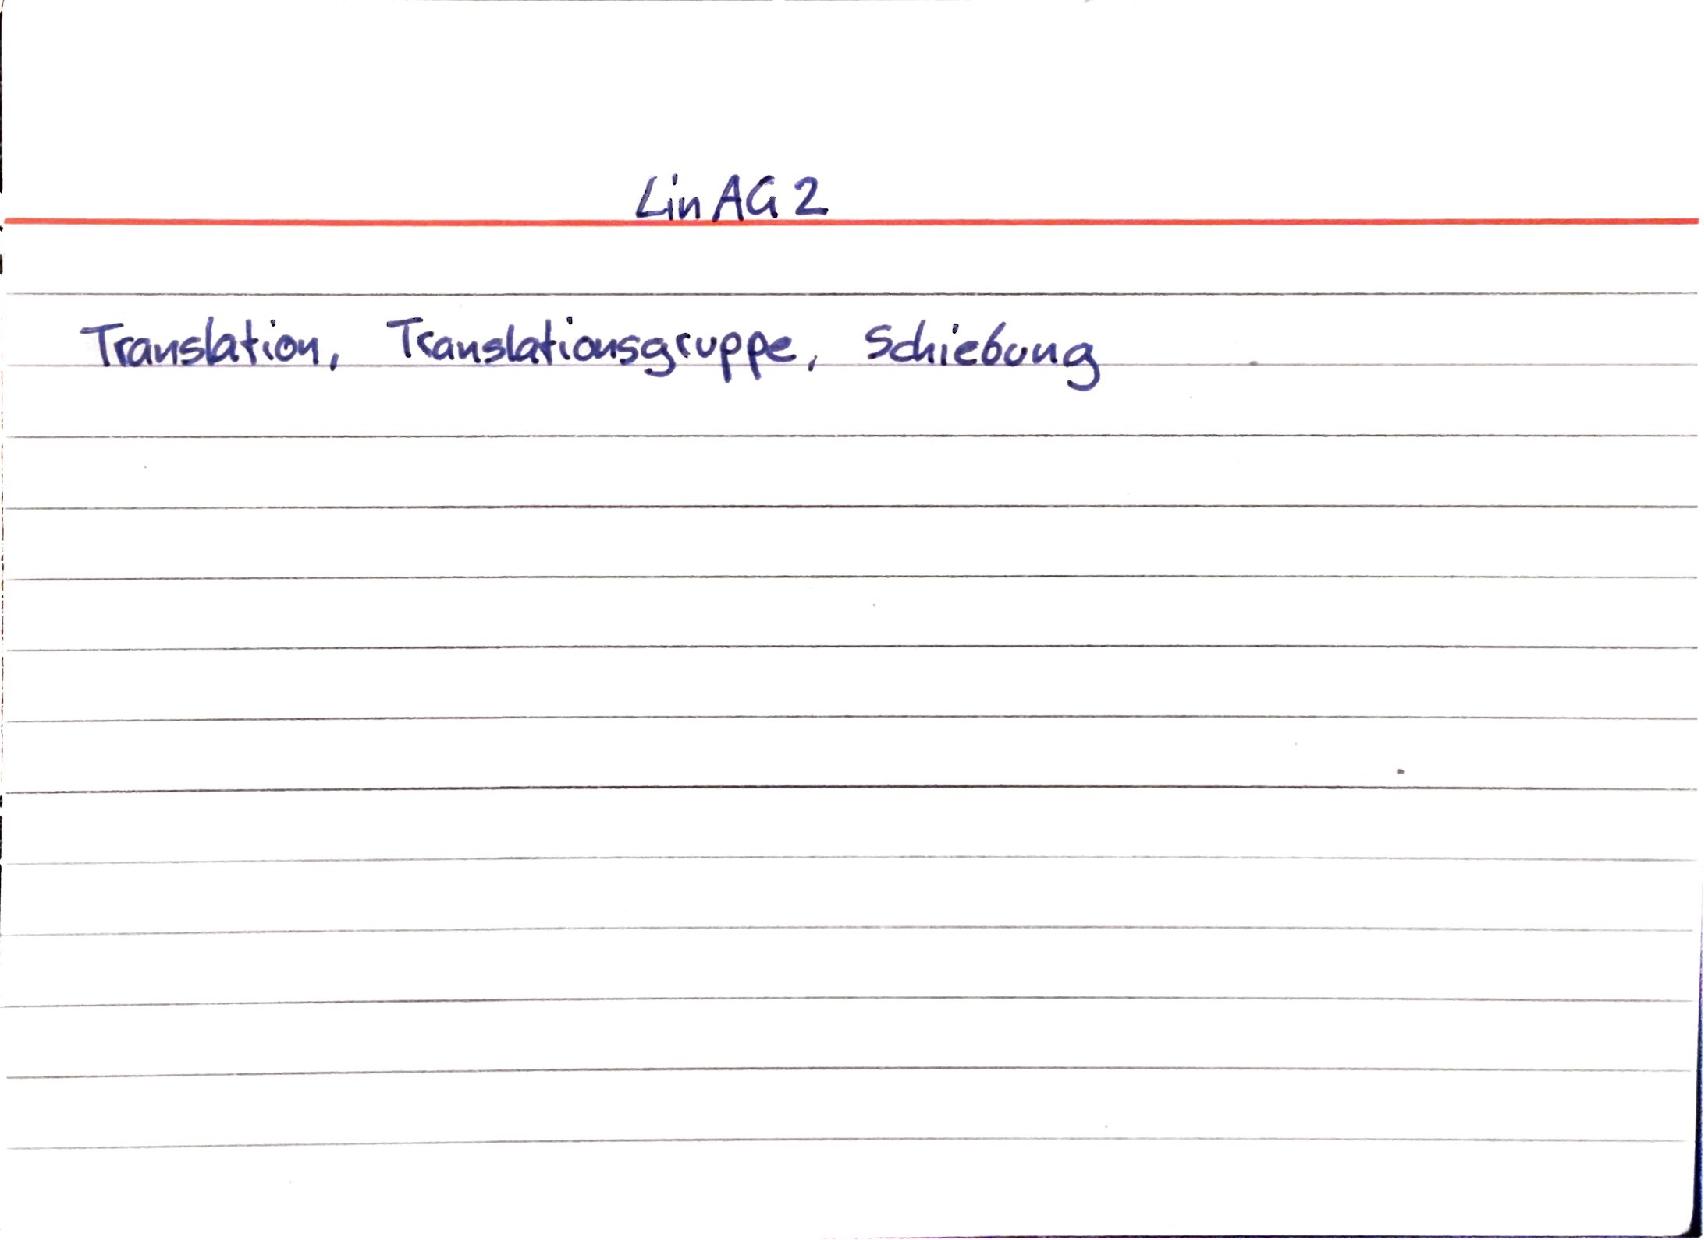 LinAG 2
Translation, Translationsgruppe, Schiebung